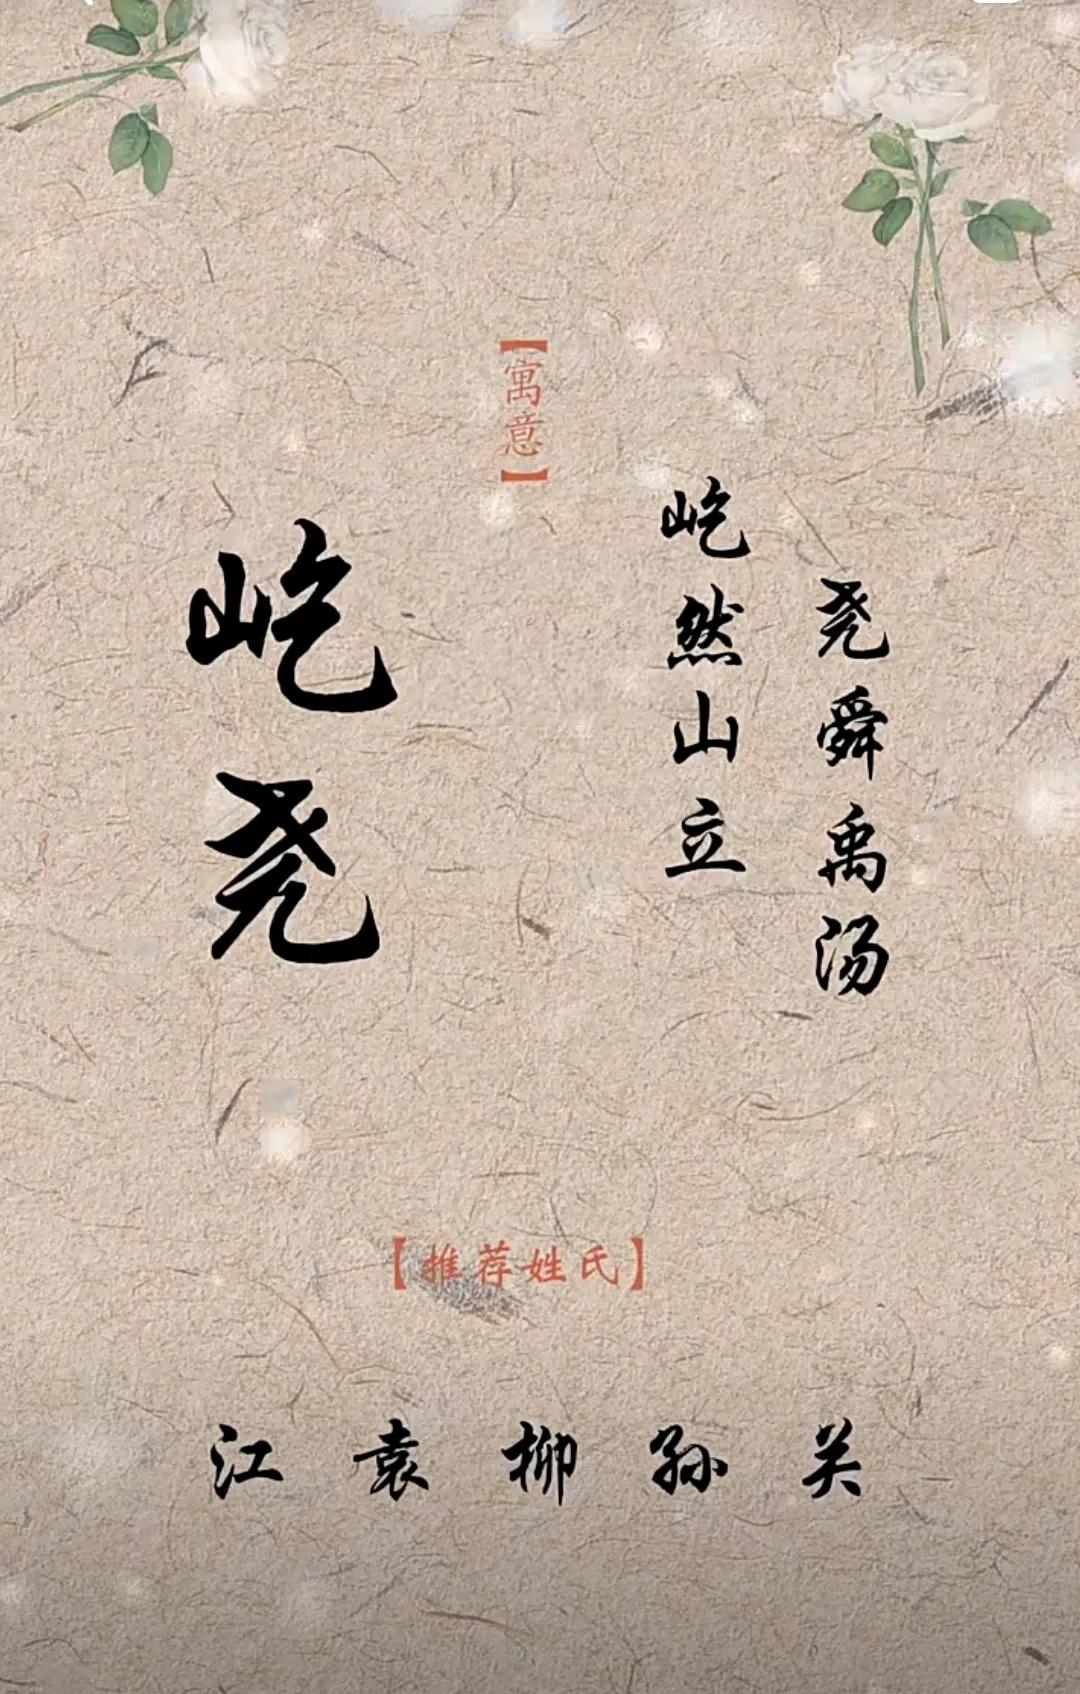 【寓意】
屹尧
屹然山立
尧舜禹汤
【推荐姓氏】
江 袁 柳 孙 关